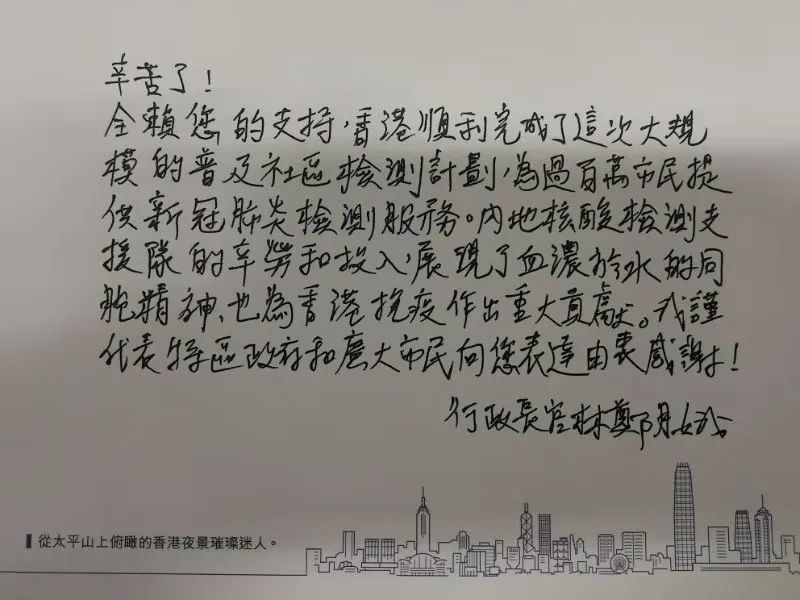 辛苦了！
全賴您的支持，香港順利完成了這次大規
模的普及社區檢測計劃，為過百萬市民提
供新冠肺炎檢測服務。內地核酸檢測支
援隊的辛勞和投入，展現了血濃於水的同
胞精神，也為香港抗疫作出重大貢獻。我謹
代表特區政府和廣大市民向您表達由衷感謝！
行政長官林鄭月娥
從太平山上俯瞰的香港夜景璀璨迷人。